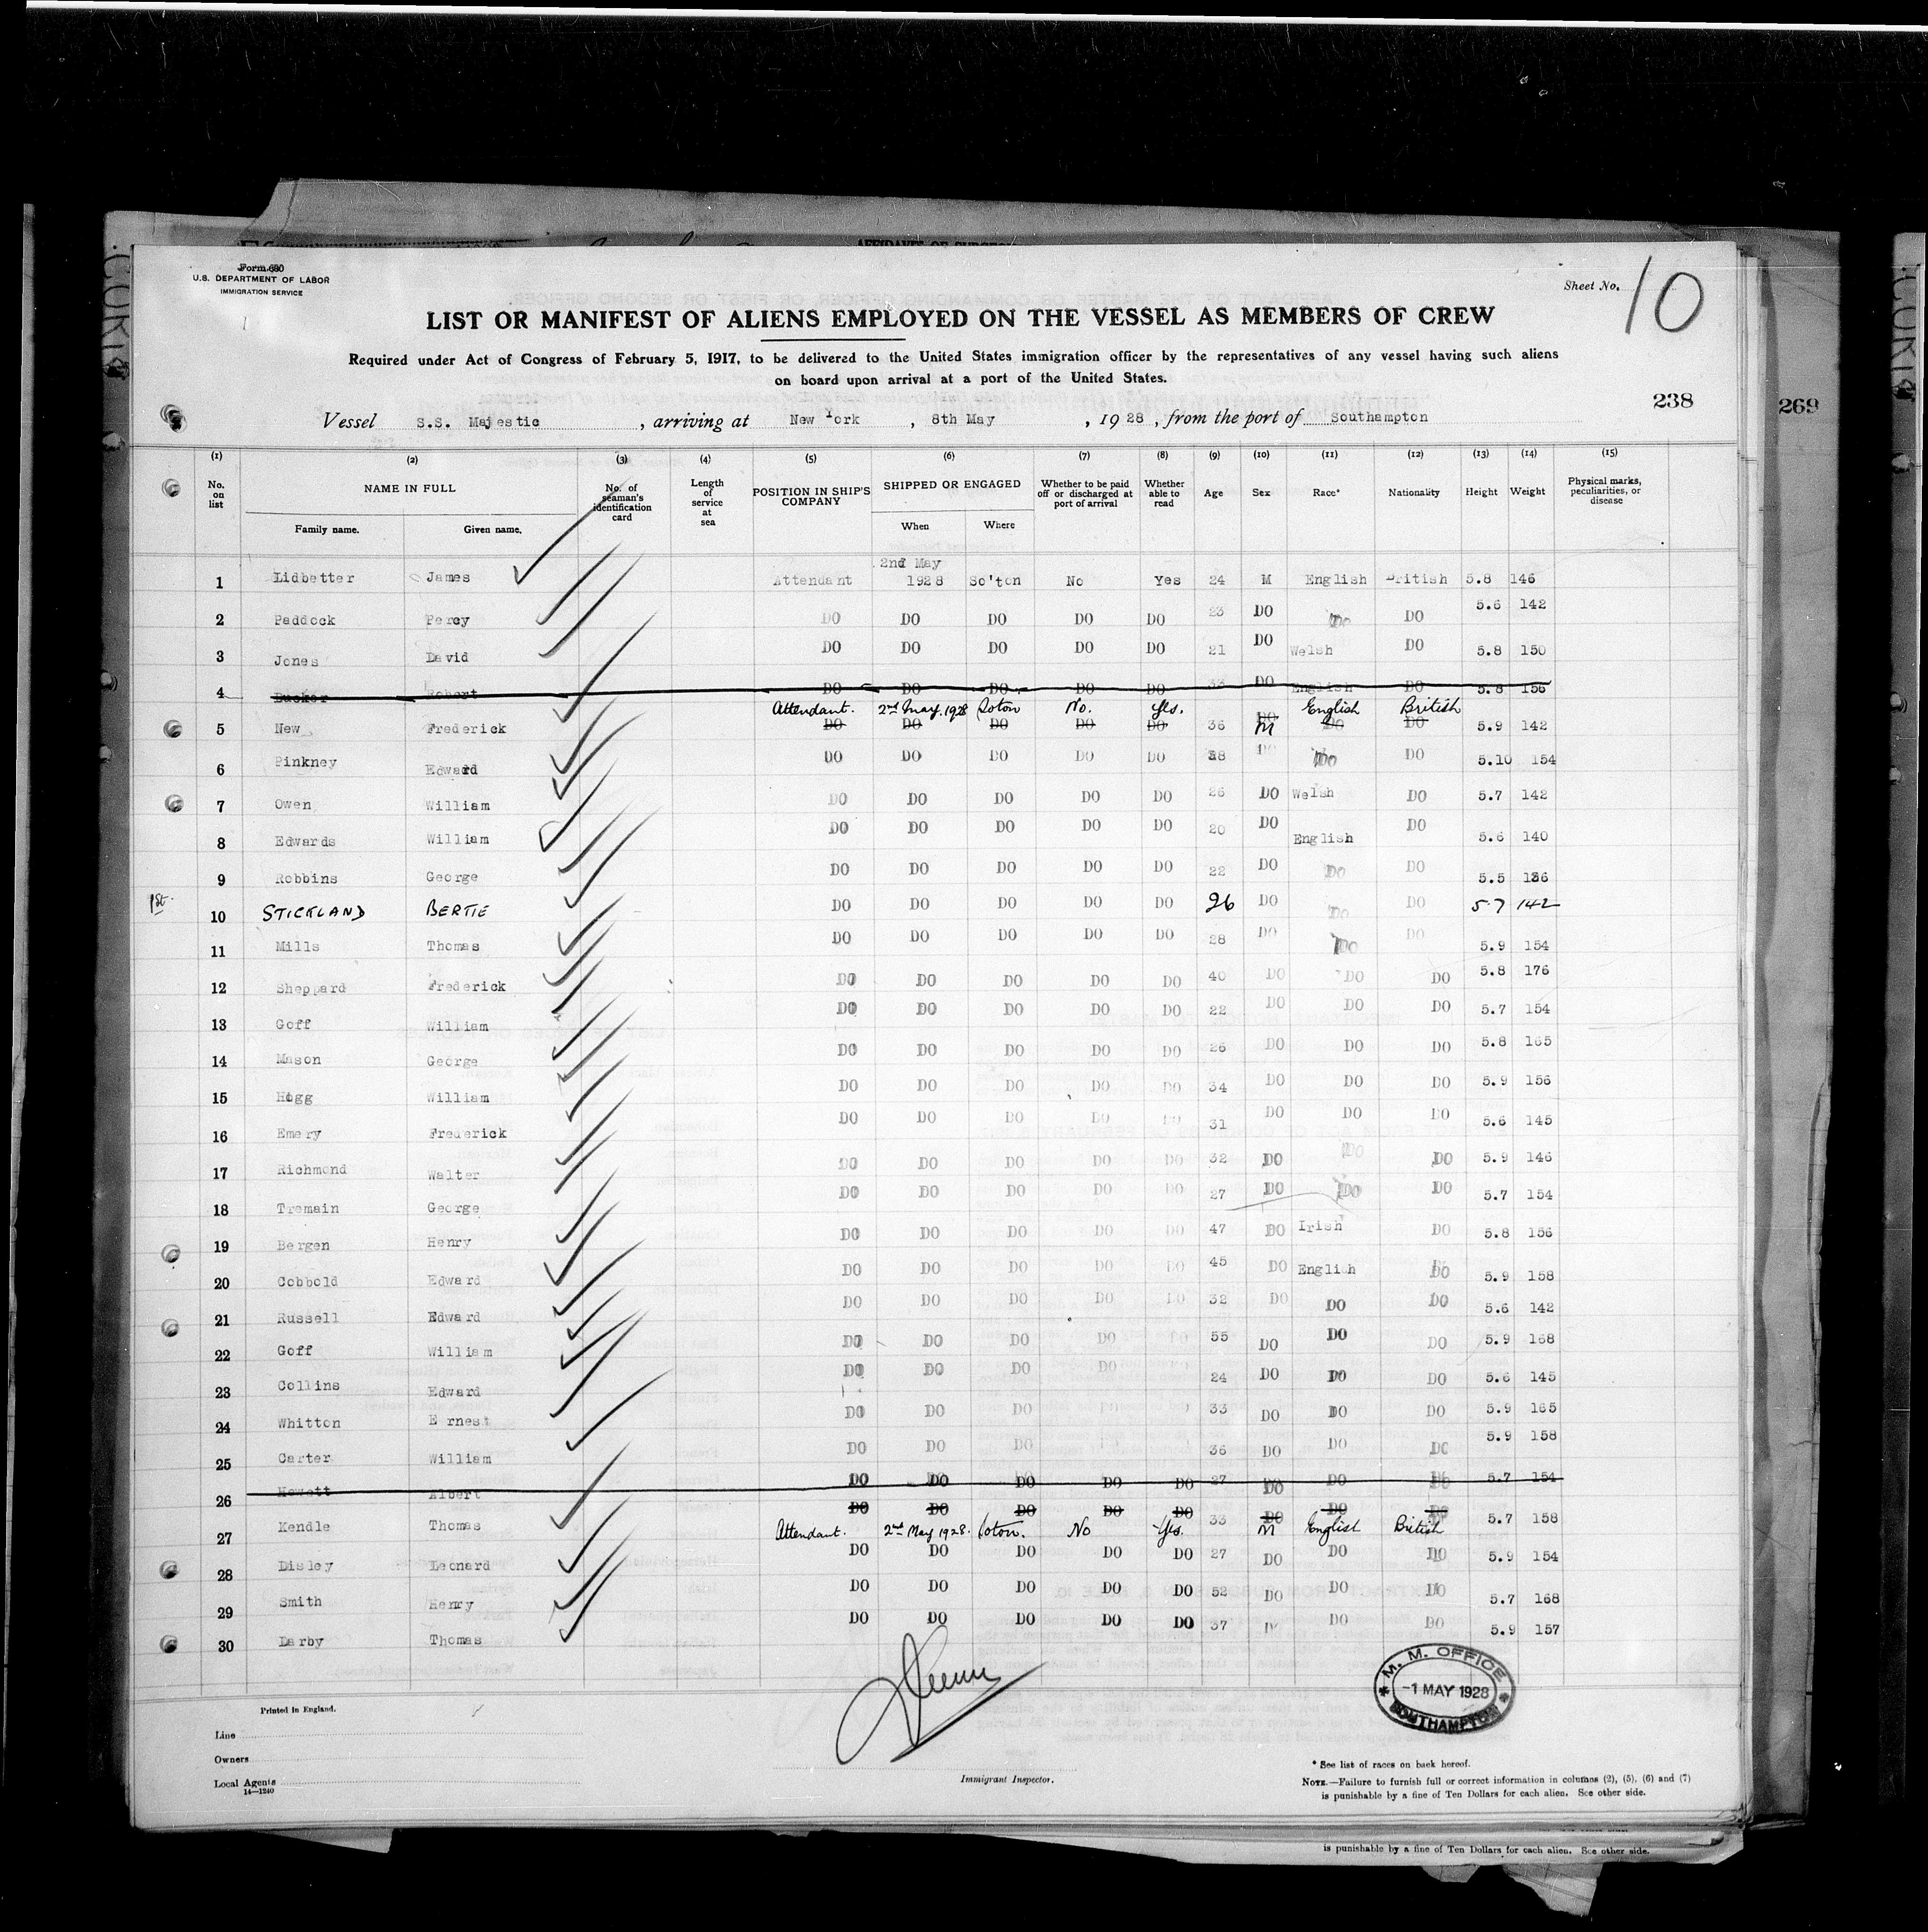 Form 680
U.S. DEPARTMENT OF LABOR
IMMIGRATION SERVICE
Sheet No. 10
LIST OR MANIFEST OF ALIENS EMPLOYED ON THE VESSEL AS MEMBERS OF CREW
Required under Act of Congress of February 5, 1917, to be delivered to the United States immigration officer by the representatives of any vessel having such aliens
on board upon arrival at a port of the United States.
238
269
Vessel S.S. Majestic, arriving at New York, 8th May, 1928, from the port of Southampton
(1) (2) (3) (4) (5) (6) (7) (8) (9) (10) (11) (12) (13) (14) (15)
No. on list NAME IN FULL Family name. Given name. No. of seaman's identification card Length of service at sea POSITION IN SHIP'S COMPANY SHIPPED OR ENGAGED When Where Whether to be paid off or discharged at port of arrival Whether able to read Age Sex Race* Nationality Height Weight Physical marks, peculiarities, or disease
1 Lidbetter James Attendant 2nd May 1928 So'ton No Yes 24 M English British 5.8 146
2 Paddock Percy DO DO DO DO DO 23 DO DO DO 5.6 142
3 Jones David DO DO DO DO DO 21 DO Welsh DO 5.8 150
4 Robert DO DO DO DO DO 33 DO English DO 5.8 156
Attendant. 2nd May. 1928 Soton No. Yes. English British
5 New Frederick DO DO DO DO DO 36 DO M DO DO 5.9 142
6 Pinkney Edward DO DO DO DO DO 38 DO DO DO 5.10 154
7 Owen William DO DO DO DO DO 26 DO Welsh DO 5.7 142
8 Edwards William DO DO DO DO DO 20 DO English DO 5.6 140
9 Robbins George DO DO DO DO DO 22 DO DO DO 5.5 136
1st. 10 STICKLAND BERTIE DO DO DO DO DO 26 DO DO DO 5.7 142
11 Mills Thomas DO DO DO DO DO 28 DO DO DO 5.9 154
12 Sheppard Frederick DO DO DO DO DO 40 DO DO DO 5.8 176
13 Goff William DO DO DO DO DO 22 DO DO DO 5.7 154
14 Mason George DO DO DO DO DO 26 DO DO DO 5.8 165
15 Hogg William DO DO DO DO DO 34 DO DO DO 5.9 156
16 Emery Frederick DO DO DO DO DO 31 DO DO DO 5.6 145
17 Richmond Walter DO DO DO DO DO 32 DO DO DO 5.9 146
18 Tremain George DO DO DO DO DO 27 DO DO DO 5.7 154
19 Bergen Henry DO DO DO DO DO 47 DO Irish DO 5.8 156
20 Cobbold Edward DO DO DO DO DO 45 DO English DO 5.9 158
21 Russell Edward DO DO DO DO DO 32 DO DO DO 5.6 142
22 Goff William DO DO DO DO DO 55 DO DO DO 5.9 168
23 Collins Edward DO DO DO DO 24 DO DO DO 5.6 145
24 Whitton Ernest DO DO DO DO 33 DO DO DO 5.9 165
25 Carter William DO DO DO 36 DO DO DO 5.9 158
26 Hewett Albert DO DO DO DO DO 27 DO DO DO 5.7 154
27 Kendle Thomas DO DO DO DO DO 33 DO DO DO 5.7 158
Attendant. 2nd May 1928. Soton. No Yes. M English British
28 Disley Leonard DO DO DO DO DO 27 DO DO DO 5.9 154
29 Smith Henry DO DO DO DO DO 52 DO DO DO 5.7 168
30 Darby Thomas DO DO DO DO DO 37 DO DO 5.9 157
M. M. OFFICE
-1 MAY 1928
SOUTHAMPTON
Printed in England.
Line
Owners
Local Agents
14—1240
Immigrant Inspector.
* See list of races on back hereof.
NOTE.—Failure to furnish full or correct information in columns (2), (5), (6) and (7)
is punishable by a fine of Ten Dollars for each alien. See other side.
is punishable by a fine of Ten Dollars for each alien. See other side.